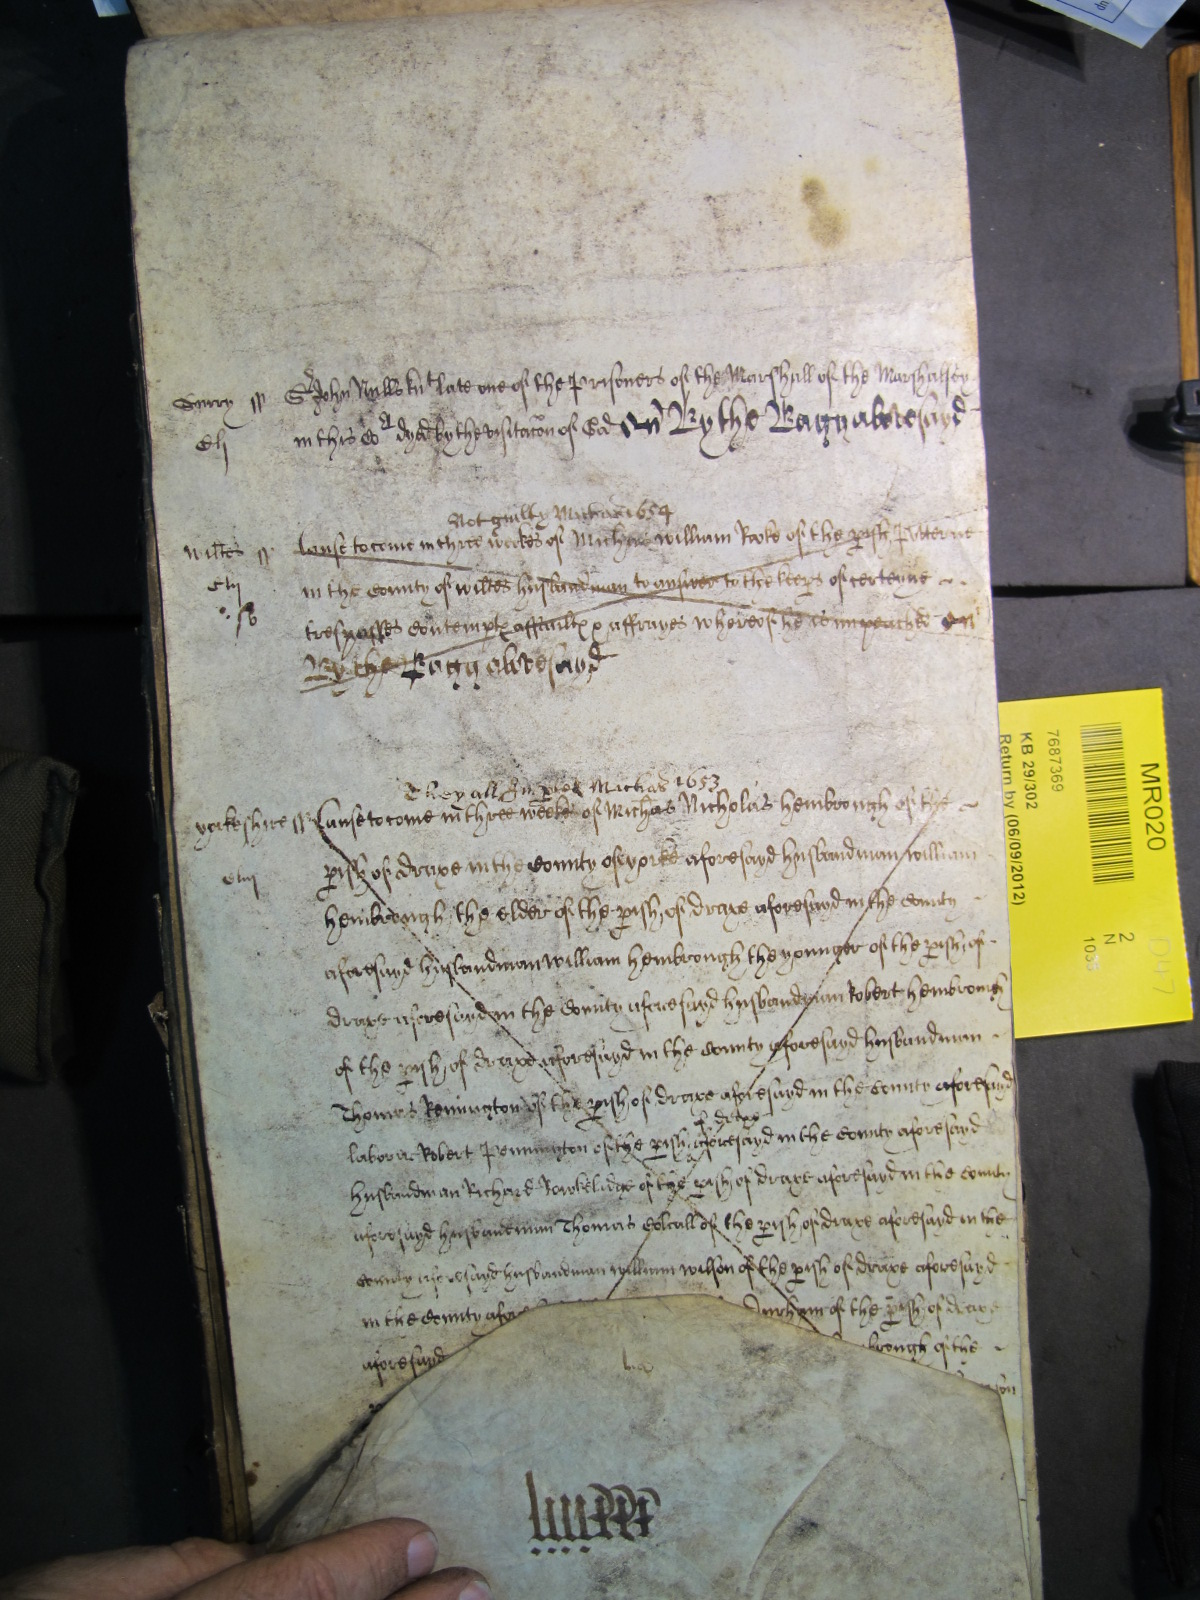 Surry ss Sr John Mills knt late one of the Prisoners of the Marshall of the Marshalsey
in this Cot dyed by the visitacon of God By the Bagg abovesayd
Not guilty Michas 1654
Wiltes ss Cause to come in three weekes of Michas William Rooke of the pish Potterne
in the County of Wiltes husbandman to answer to the keeps of certeyne
trespasses Contempts assaultes affrayes whereof he is impeached
By the Bagg abovesayd
They all Michas 1653
yorkeshire ss Cause to come in three weeks of Michas Nicholas hembrough of the
pish of draxe in the County of yorke aforesayd husbandman William
hembrough the elder of the pish of draxe aforesayd in the County
aforesayd husbandman William hembrough the younger of the pish of
draxe aforesayd in the County aforesayd husbandman Robert hembrough
of the pish of draxe aforesayd in the County aforesayd husbandman
Thomas Remington of the pish of draxe aforesayd in the County aforesayd
of draxe
laborer Robert Pennington of the pish aforesayd in the County aforesayd
husbandman Richard of the pish of draxe aforesayd in the County
aforesayd husbandman Thomas of the pish of draxe aforesayd in the
County aforesayd husbandman William Wilson of the pish of draxe aforesayd
in the County of the pish of draxe
aforesayd brough of the
MR020
7687369
KB 29/302
Return by (06/09/2012)
2
N